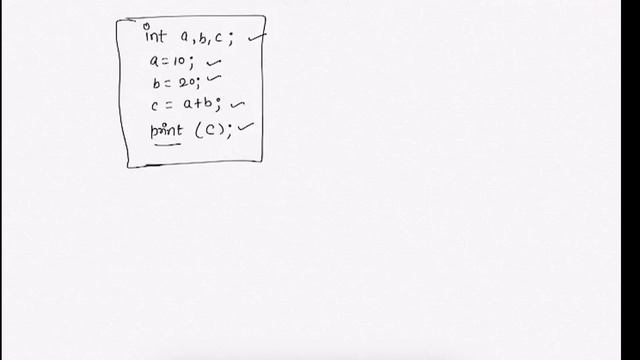 int a,b,c;
a=10;
b=20;
c = a+b;
print (c);